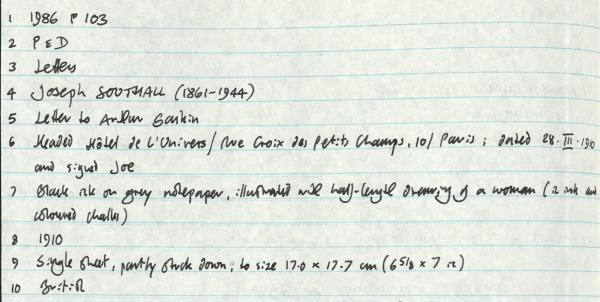 1 1986 P 103
2 P & D
3 Letters
4 Joseph SOUTHALL (1861-1944)
5 Letter to Arthur Gaskin
6 Headed Hôtel de L'Univers/ Rue Croix des Petits Champs, 10/ Paris; dated 28.III.190
and signed Joe
7 Black ink on grey notepaper, illustrated with half-length drawing of a woman (in ink and
coloured chalks)
8 1910
9 Single sheet, partly stuck down, to size 17.0 x 17.7 cm (6 5/8 x 7 in)
10 British